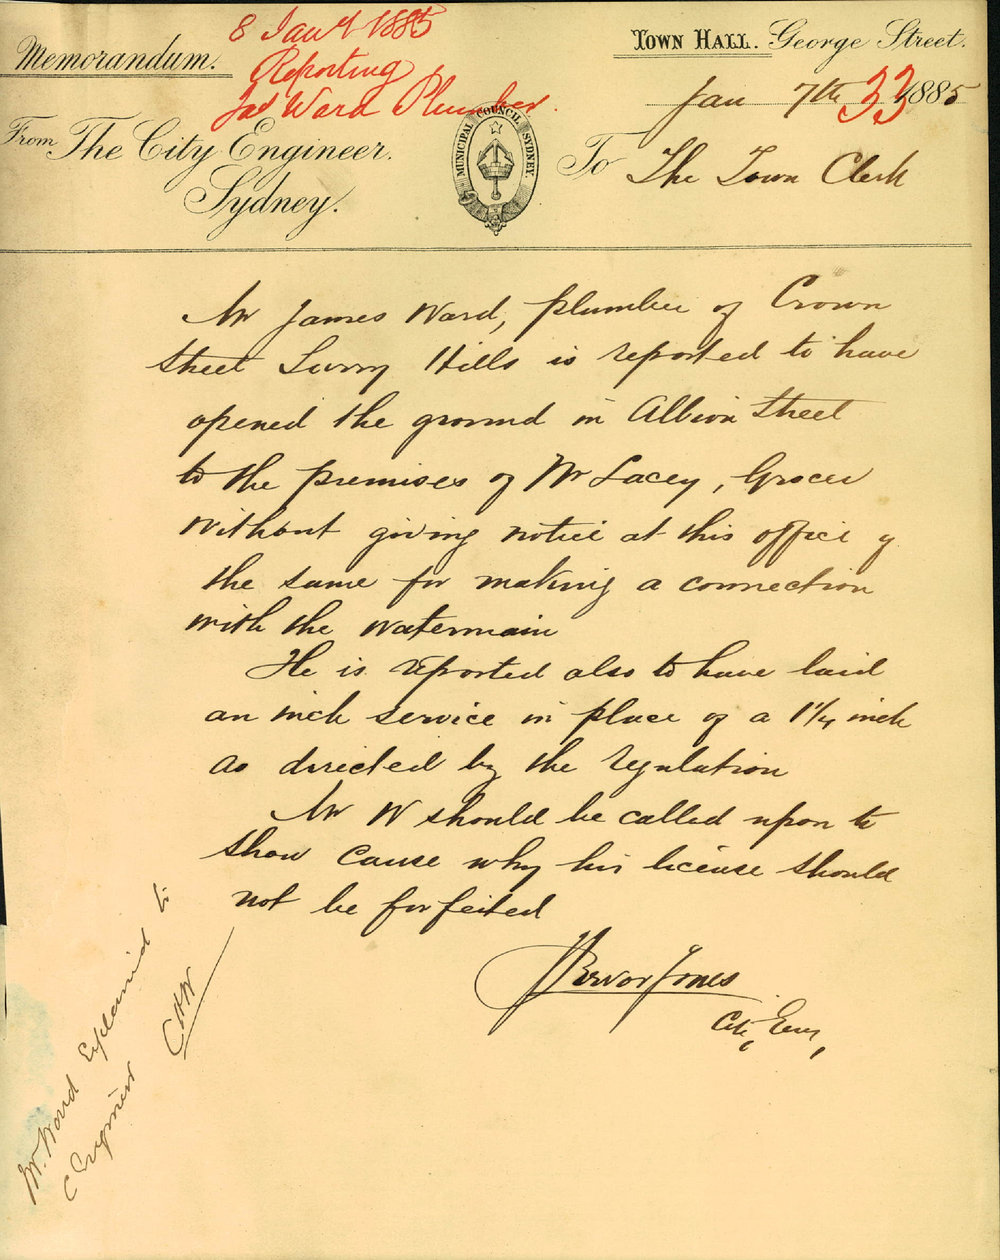 8 Jany 1885
Reporting
Jas Ward Plumber
Memorandum.
Town Hall. George Street.
Jan 7th 1885
33
From The City Engineer.
Sydney.
MUNICIPAL COUNCIL SYDNEY.
To The Town Clerk
Mr James Ward, plumber of Crown
Street Surry Hills is reported to have
opened the ground in Albion Street
to the premises of Mr Lacey, Grocer
without giving notice at this office of
the same for making a connection
with the watermain
He is reported also to have laid
an inch service in place of a 1 1/4 inch
as directed by the regulation
Mr W should be called upon to
show cause why his license should
not be forfeited
J Trevor Jones
City Engr,
Mr. Ward Explained to
C Engineer CHW